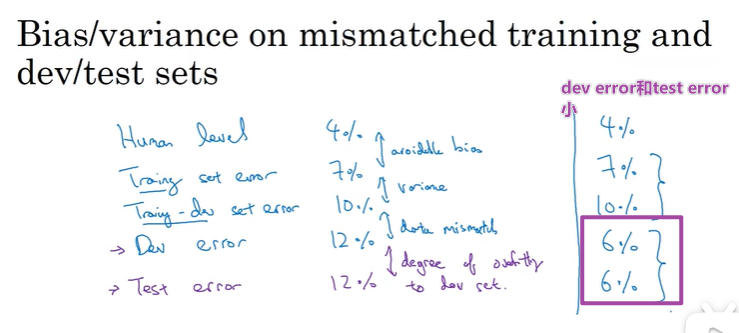 Bias/variance on mismatched training and
dev/test sets
dev error和test error
小
Human level 4% 4%
avoidable bias
Training set error 7% 7%
variance
Training-dev set error 10% 10%
data mismatch
→ Dev error 12% 6%
degree of overfitting
to dev set.
→ Test error 12% 6%